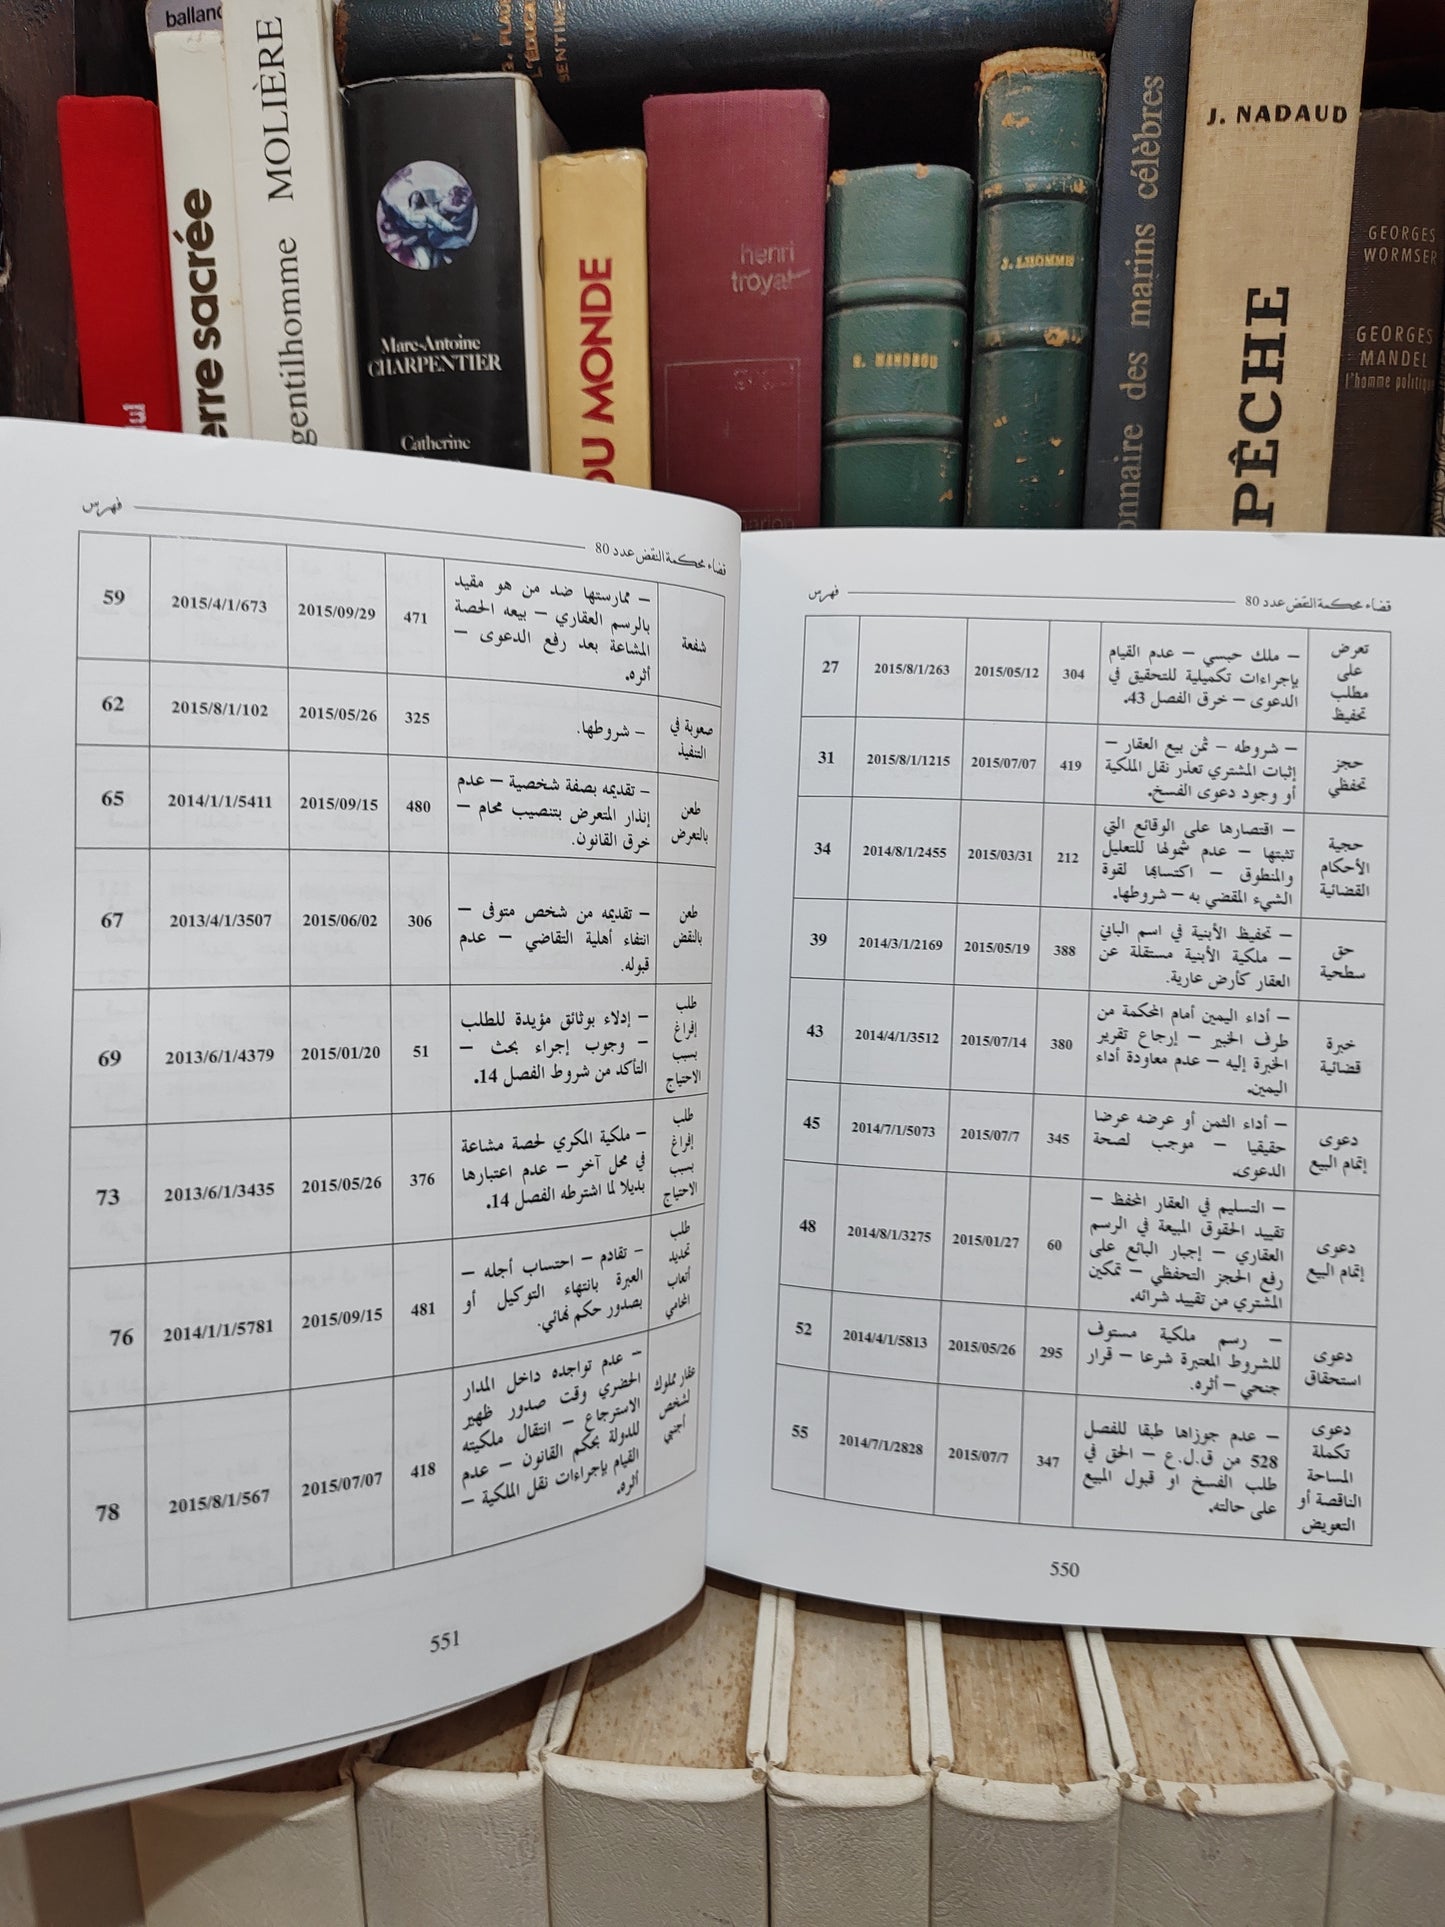 balland
erre sacrée
gentilhomme MOLIÈRE
Marc-Antoine
CHARPENTIER
Catherine
G. FLAU
L'ÉDUCA
SENTIME
DU MONDE
henri
troyat
J. LHOMME
onnaire des marins célèbres
J. NADAUD
PÊCHE
GEORGES
WORMSER
GEORGES
MANDEL
l'homme politique
قضاء محكمة النقض عدد 80
فهرس
تعرض
على
مطلب
تحفيظ
– ملك حبسي – عدم القيام
بإجراءات تكميلية للتحقيق في
الدعوى – خرق الفصل 43.
304
2015/05/12
2015/8/1/263
27
حجز
تحفظي
– شروطه – ثمن بيع العقار –
إثبات المشتري تعذر نقل الملكية
أو وجود دعوى الفسخ.
419
2015/07/07
2015/8/1/1215
31
حجية
الأحكام
القضائية
– اقتصارها على الوقائع التي
تثبتها – عدم شمولها للتعليل
والمنطوق – اكتسابها لقوة
الشيء المقضي به – شروطها.
212
2015/03/31
2014/8/1/2455
34
حق
سطحية
– تحفيظ الأبنية في اسم الباني
– ملكية الأبنية مستقلة عن
العقار كأرض عارية.
388
2015/05/19
2014/3/1/2169
39
خبرة
قضائية
– أداء اليمين أمام المحكمة من
طرف الخبير – إرجاع تقرير
الخبرة إليه – عدم معاودة أداء
اليمين.
380
2015/07/14
2014/4/1/3512
43
دعوى
إتمام البيع
– أداء الثمن أو عرضه عرضا
حقيقيا – موجب لصحة
الدعوى.
345
2015/07/7
2014/7/1/5073
45
دعوى
إتمام البيع
– التسليم في العقار المحفظ –
تقييد الحقوق المبيعة في الرسم
العقاري – إجبار البائع على
رفع الحجز التحفظي – تمكين
المشتري من تقييد شرائه.
60
2015/01/27
2014/8/1/3275
48
دعوى
استحقاق
– رسم ملكية مستوف
للشروط المعتبرة شرعا – قرار
جنحي – أثره.
295
2015/05/26
2014/4/1/5813
52
دعوى
تكملة
المساحة
الناقصة أو
التعويض
– عدم جوازها طبقا للفصل
528 من ق.ل.ع – الحق في
طلب الفسخ او قبول المبيع
على حالته.
347
2015/07/7
2014/7/1/2828
55
550
قضاء محكمة النقض عدد 80
فهرس
شفعة
– ممارستها ضد من هو مقيد
بالرسم العقاري – بيعه الحصة
المشاعة بعد رفع الدعوى –
أثره.
471
2015/09/29
2015/4/1/673
59
صعوبة في
التنفيذ
– شروطها.
325
2015/05/26
2015/8/1/102
62
طعن
بالتعرض
– تقديمه بصفة شخصية – عدم
إنذار المتعرض بتنصيب محام –
خرق القانون.
480
2015/09/15
2014/1/1/5411
65
طعن
بالنقض
– تقديمه من شخص متوفى –
انتفاء أهلية التقاضي – عدم
قبوله.
306
2015/06/02
2013/4/1/3507
67
طلب
إفراغ
بسبب
الاحتياج
– إدلاء بوثائق مؤيدة للطلب
– وجوب إجراء بحث –
التأكد من شروط الفصل 14.
51
2015/01/20
2013/6/1/4379
69
طلب
إفراغ
بسبب
الاحتياج
– ملكية المكري لحصة مشاعة
في محل آخر – عدم اعتبارها
بديلا لما اشترطه الفصل 14.
376
2015/05/26
2013/6/1/3435
73
طلب
تحديد
أتعاب
المحامي
– تقادم – احتساب أجله –
العبرة بانتهاء التوكيل أو
بصدور حكم نهائي.
481
2015/09/15
2014/1/1/5781
76
عقار مملوك
لشخص
أجنبي
– عدم تواجده داخل المدار
الحضري وقت صدور ظهير
الاسترجاع – انتقال ملكيته
للدولة بحكم القانون – عدم
القيام بإجراءات نقل الملكية –
أثره.
418
2015/07/07
2015/8/1/567
78
551